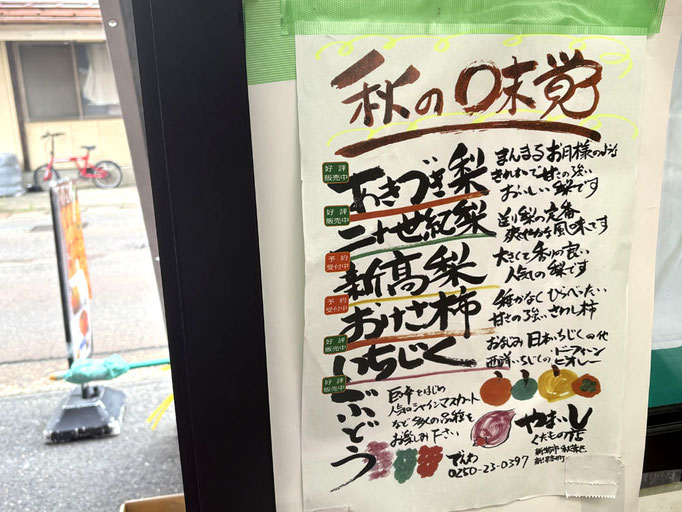 秋の味覚
好評
販売中
あきづき梨
まんまるお月様のような
きれいで甘さの強い
おいしい梨です
好評
販売中
二十世紀梨
青り梨の定番
爽やかな風味です
予約
受付中
新高梨
大きくて香りの良い
人気の梨です
予約
受付中
おけさ柿
種がなくひらべったい
甘さの強いさわし柿
好評
販売中
いちじく
お馴染み日本いちじくの他
西洋いちじくのドーフィン
ビオレー
好評
販売中
ぶどう
巨峰をはじめ
人気のシャインマスカット
など多くの品種を
お楽しみ下さい
でんわ
0250-23-0397
やまいし
くだもの店
新潟市秋葉区